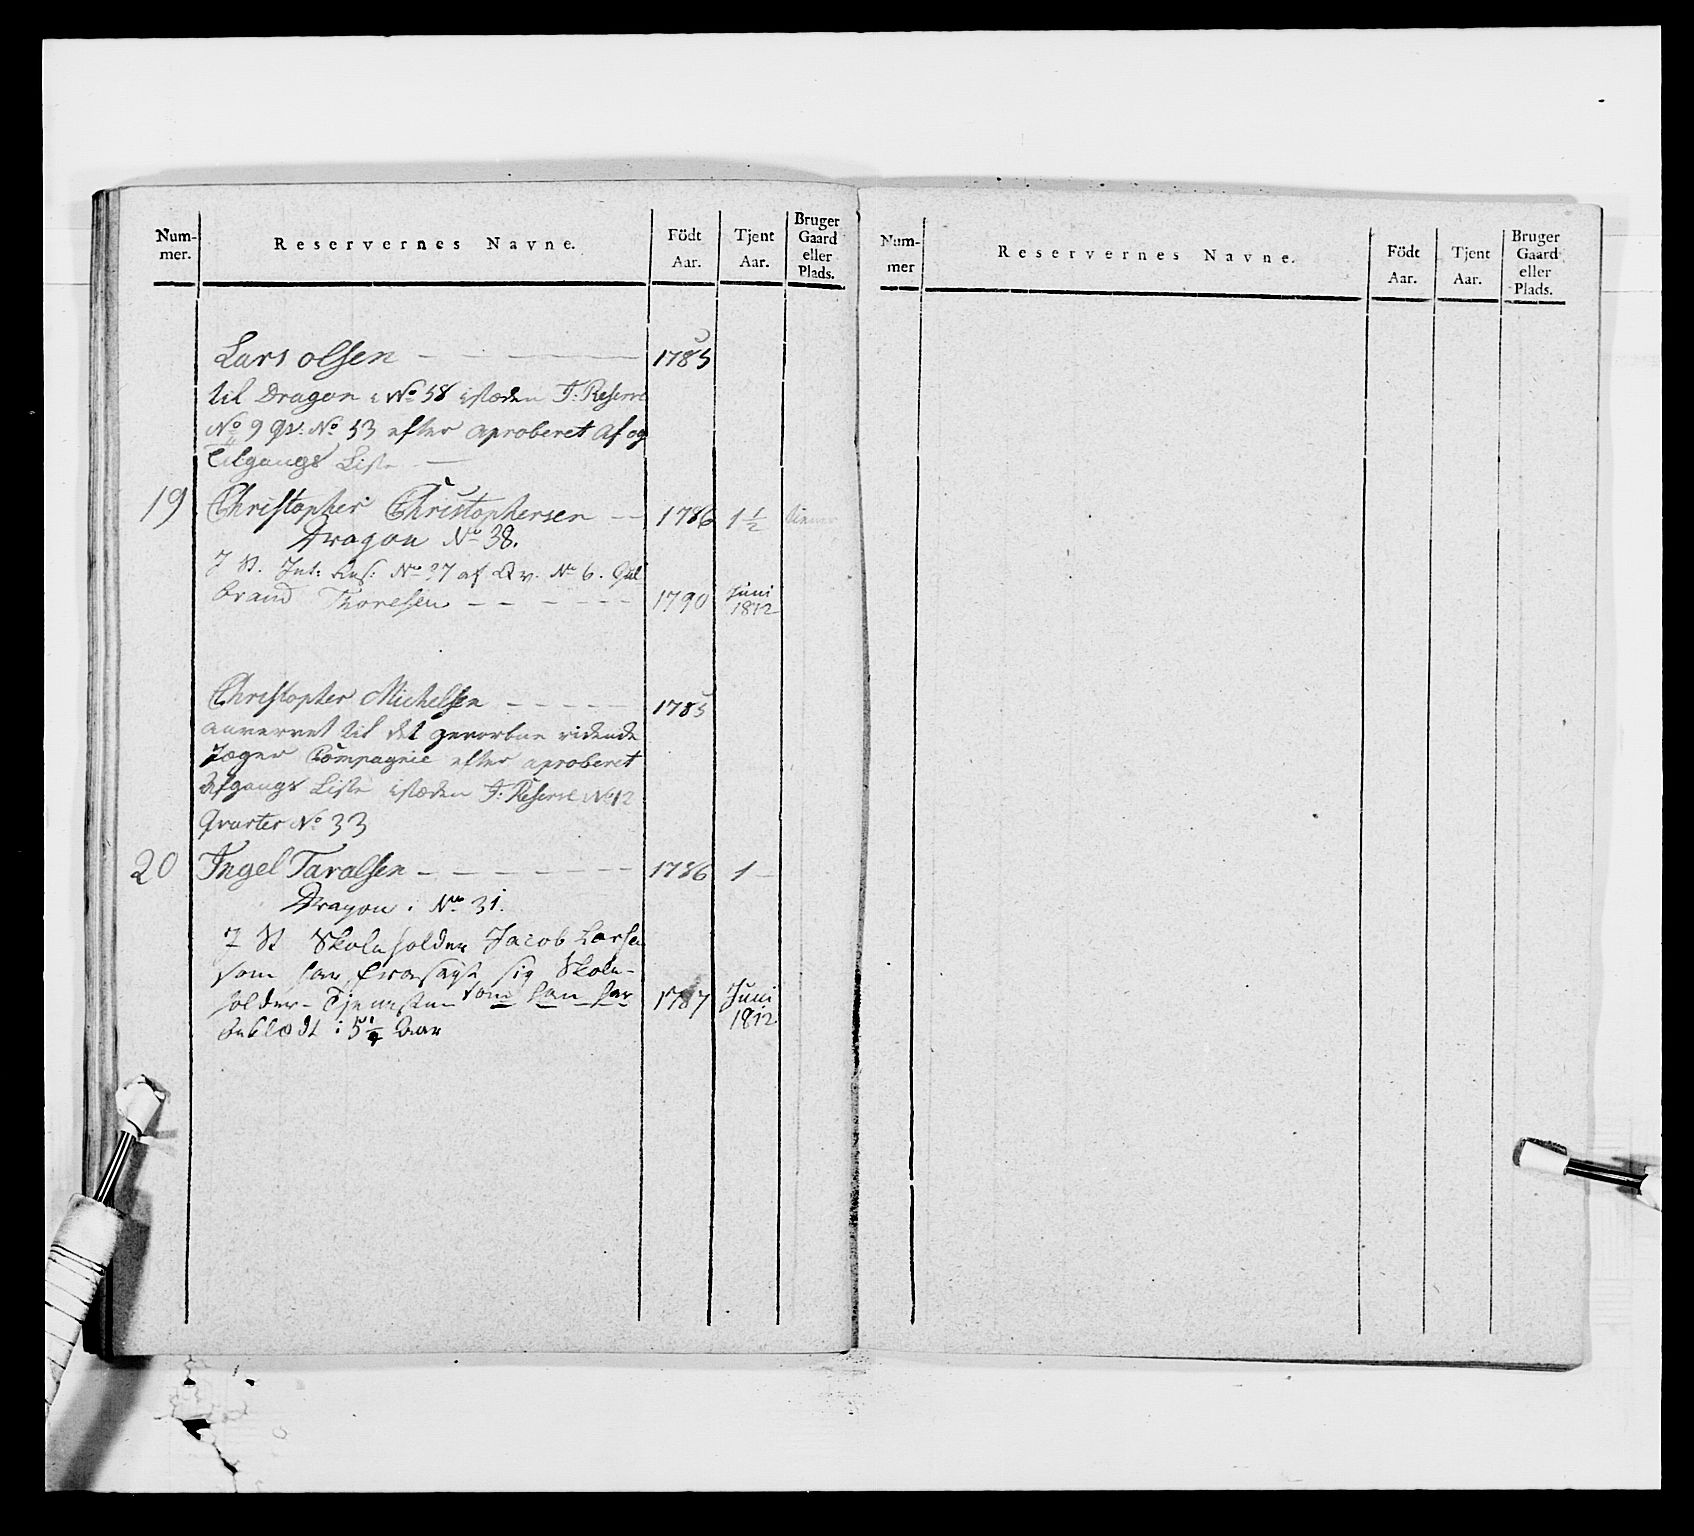 Num-
mer.
Reservernes Navne.
Födt
Aar.
Tjent
Aar.
Bruger
Gaard
eller
Plads.
Lars olsen 1785
til Dragon i No 58 istæden F: Reserve
No 9 Qv: No 53 efter aproberet Af og
Tilgangs Liste
19 Christopher Christophersen 1786 1 1/2
Dragon No 38.
J St. Int: Res: No 27 af Qv. No 6. Gul
brand Thoresen 1790 Juni 1812
Christopher Michelsen 1785
anvervet til det gevorbne ridende
Jæger Compagnie efter aproberet
Afgangs Liste istæden F: Reserve No 12
Qvarter No 33
20 Ingel Taralsen 1786 1
Dragon i No 31.
J St Skoleholder Jacob Larsen
som har fra sagt sig Skole-
holder-Tjenesten som han har 1787 Juni 1812
beklædt i 5 1/4 Aar
Num-
mer
Reservernes Navne.
Födt
Aar.
Tjent
Aar.
Bruger
Gaard
eller
Plads.